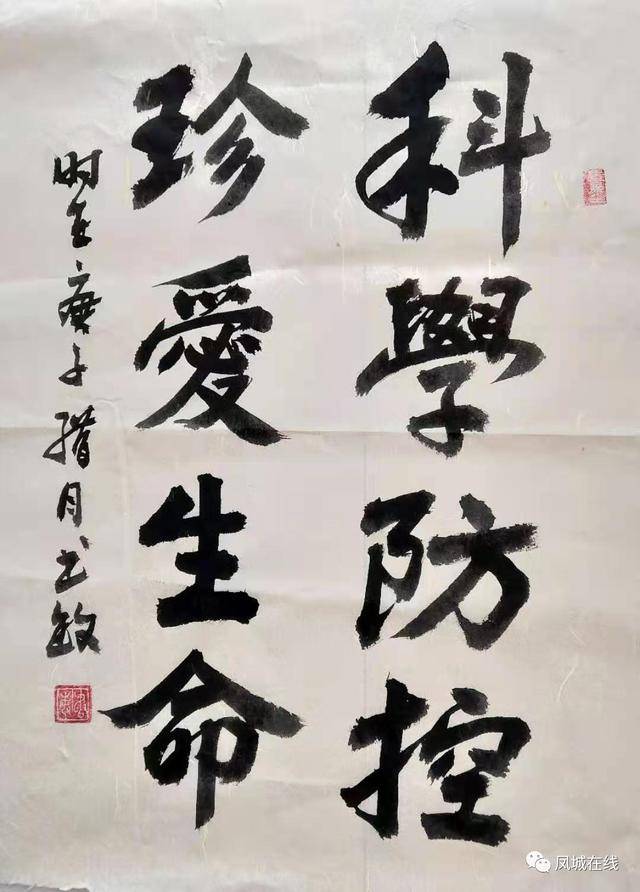 科學防控
珍愛生命
时在庚子腊月书敏
凤城在线